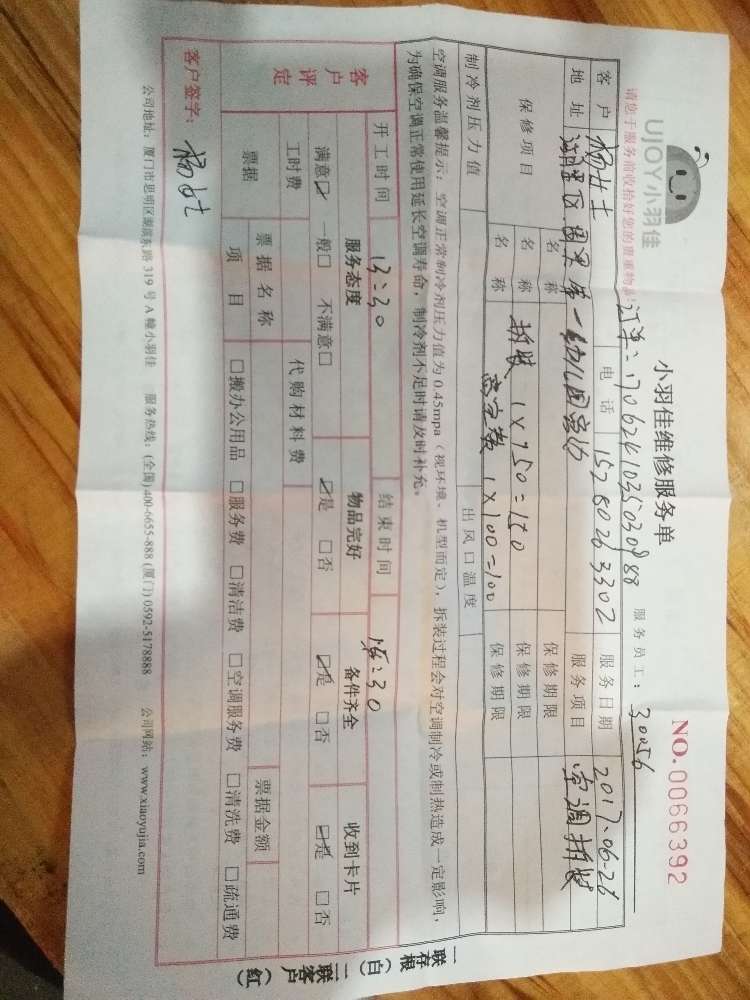 UJOY小羽佳
请您于服务前收拾好您的贵重物品!
小羽佳维修服务单
NO.0066392
订单:1706241035030988
服务员工:30056
客户 杨女士 电话 15280263302 服务日期 2017-06-26
地址 第一幼儿园宿舍 服务项目 空调拆装
保修项目 名称 保修期限
名称 拆装 1×150=150 保修期限
名称 高空费 1×100=100 保修期限
制冷剂压力值 出风口温度
空调服务温馨提示:空调正常制冷剂压力值为0.45mpa(视环境、机型而定),拆装过程会对空调制冷或制热造成一定影响,
为确保空调正常使用延长空调寿命,制冷剂不足时请及时补充。
开工时间 13:30 结束时间 :30
客户评定 服务态度 物品完好 备件齐全 收到卡片
满意☑ 一般□ 不满意□ ☑是 □否 ☑是 □否 ☑是 □否
工时费 代购材料费
票据 票据名称 票据金额
项目 □搬办公用品 □服务费 □清洁费 □空调服务费 □清洗费 □疏通费
客户签字:杨女士
一联存根(白)二联客户(红)
公司地址:厦门市思明区湖滨东路319号A幢小羽佳 服务热线:(全国)400-6655-888 (厦门)0592-5178888 公司网站:www.xiaoyujia.com